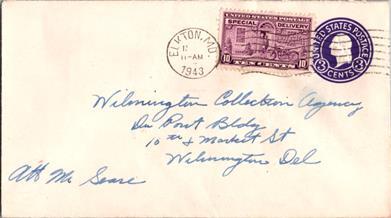 ELKTON, MD.
11-AM
1943
UNITED STATES POSTAGE
SPECIAL DELIVERY
10 TEN CENTS 10
UNITED STATES POSTAGE
3 CENTS 3
Wilmington Collection Agency
Du Pont Bldg
10th & Market St
Wilmington Del
Att Mr